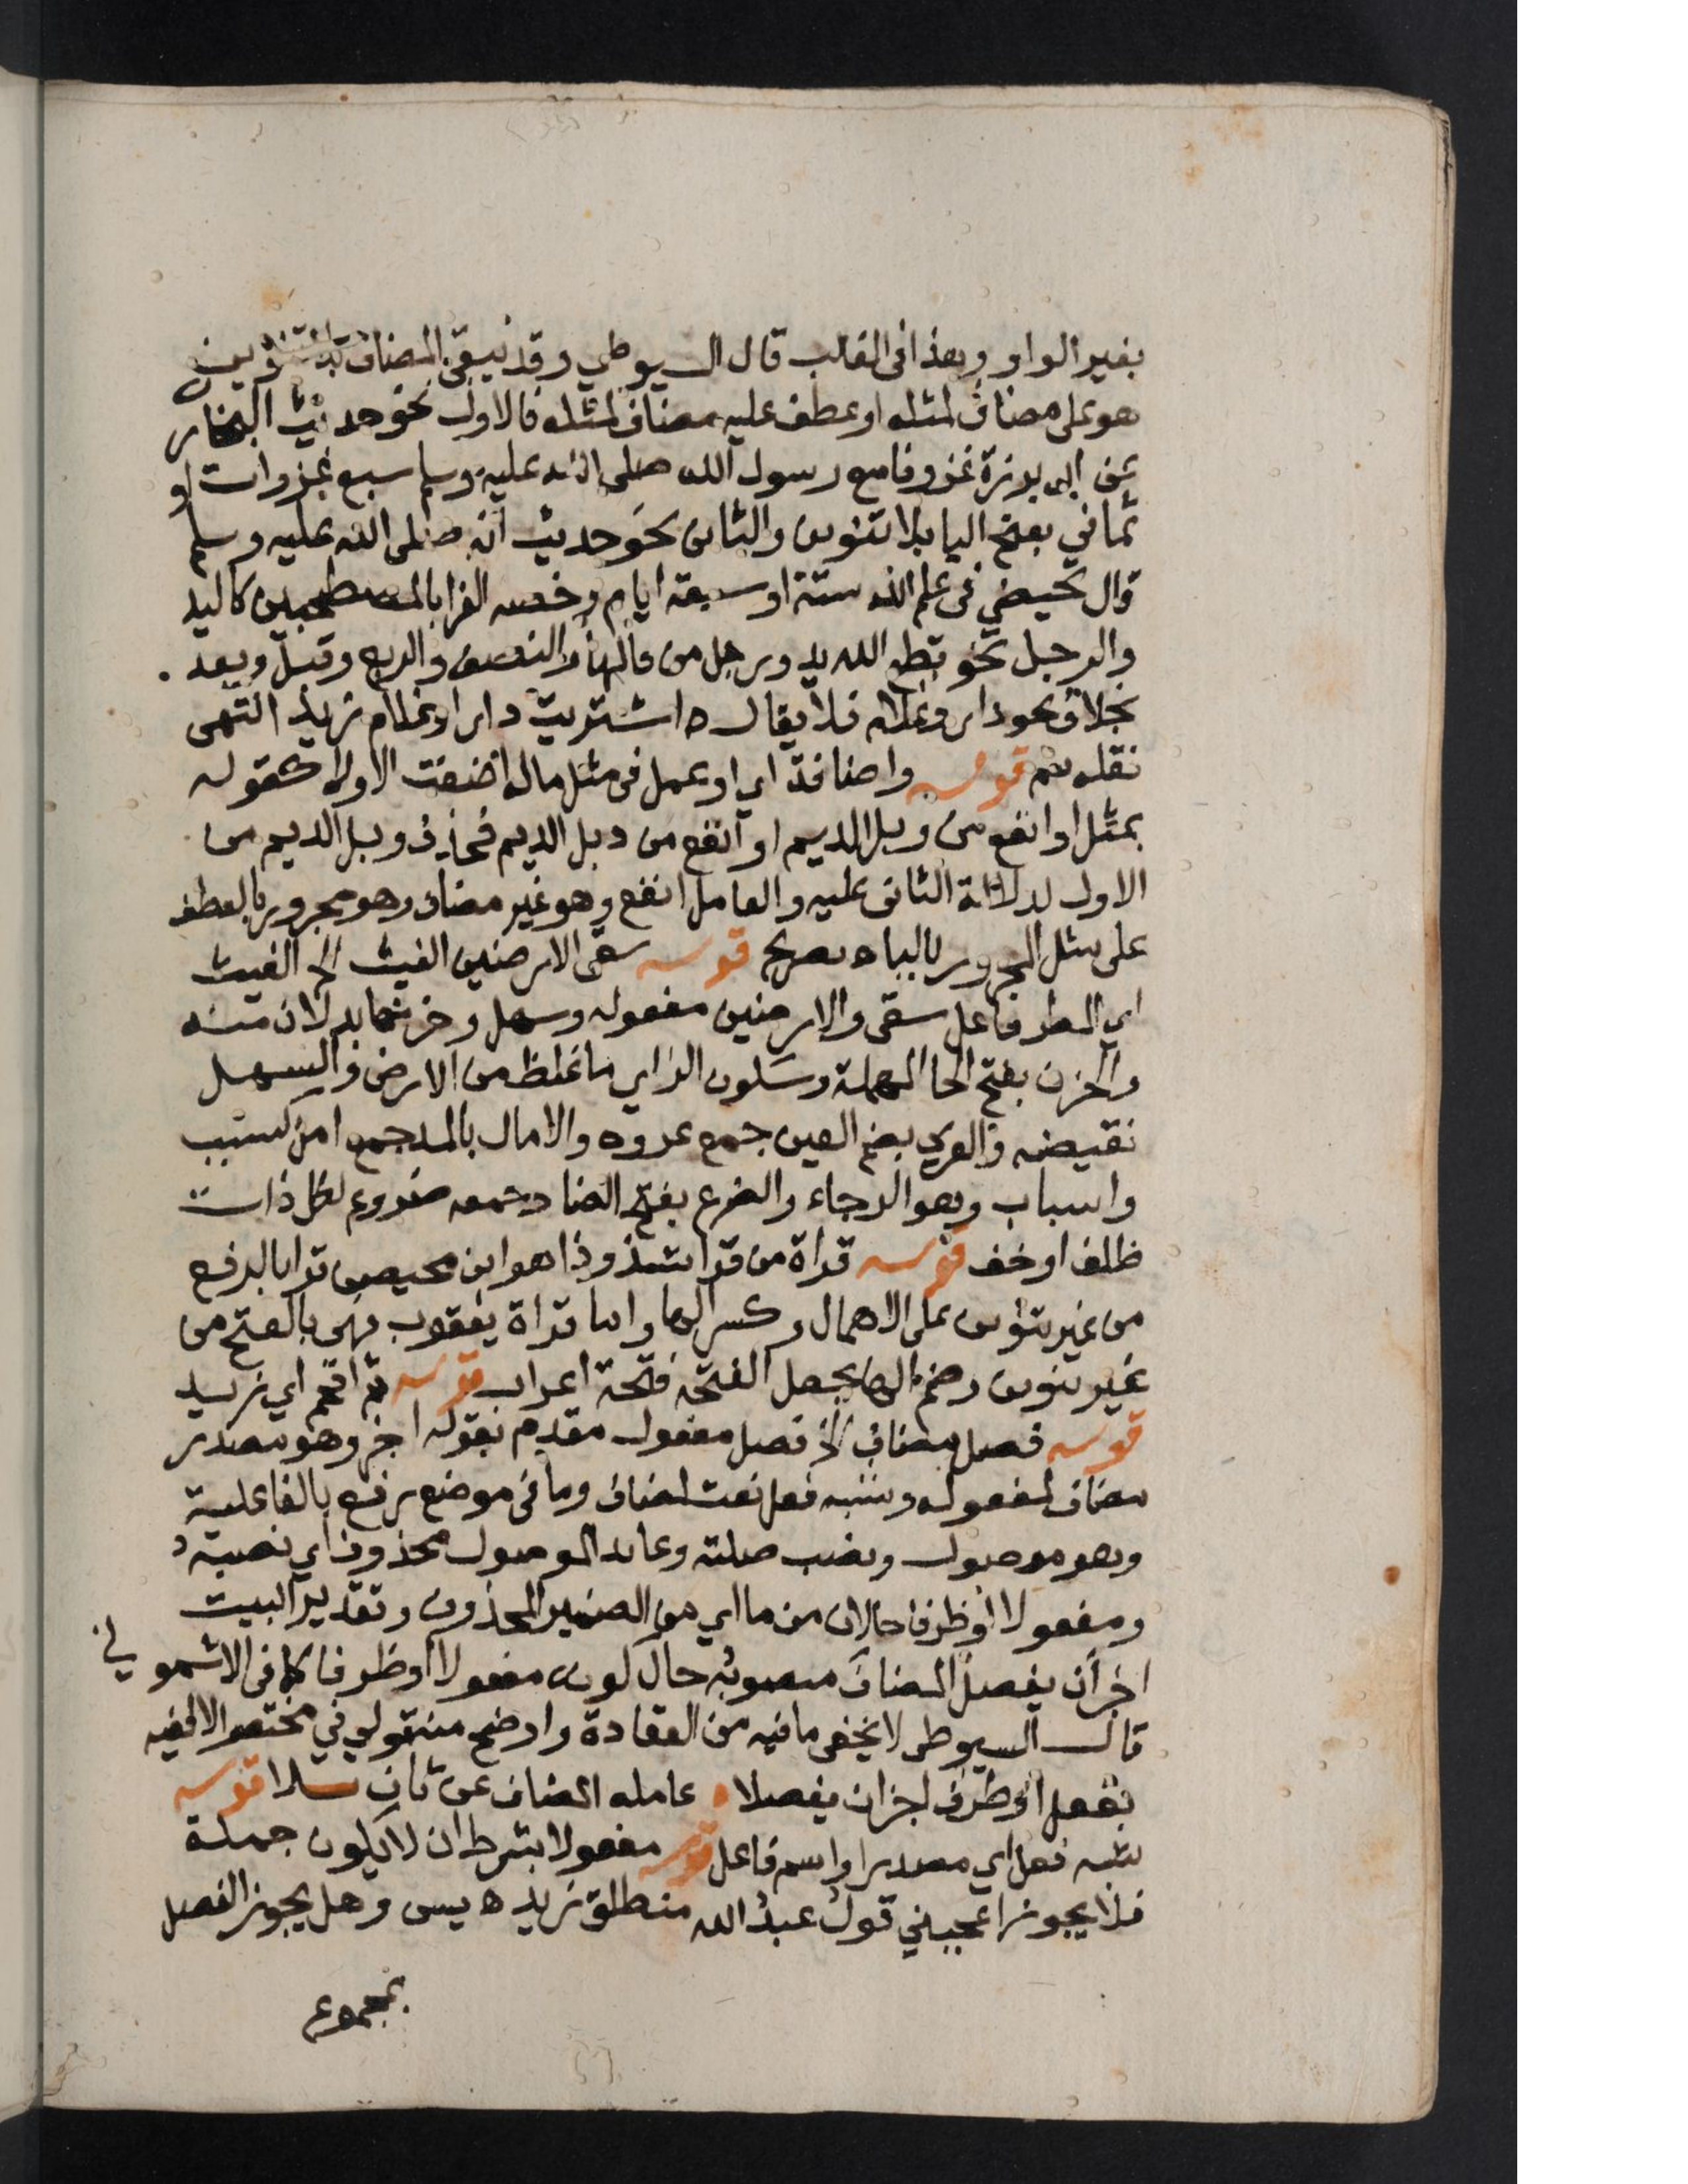 بغير الواو وهذا في الغالب قال السيوطي وقد يبقى المضاف بلا تنوين
هو على مضاف لمثله او عطف عليه مضاف لمثله فالاول نحو حديث البخاري
عن ابي برزة غزونا مع رسول الله صلى الله عليه وسلم سبع غزوات او
ثماني بفتح اليا بلا تنوين والثاني نحو حديث انه صلى الله عليه وسلم
قال تحيضي في علم الله ستة او سبعة ايام وخصه الفرا بالمصطحبين كاليد
والرجل نحو قطع الله يد ورجل من قالها والنصف والربع وقبل وبعد .
بخلاف نحو دار وغلام فلا يقال ه اشتريت دار او غلام زيد انتهى
نقله سم قوله واضافة اي او عمل في مثل ما له اضفت الاولا كقوله
بمثل او انفع من وبل الديم او انفع من وبل الديم فحذف وبل الديم من
الاول لدلالة الثاني عليه والعامل انفع وهو غير مضاف وهو مجرور بالعطف
على مثل المجرور بالباء ه تصريح قوله سقى الارضين الغيث الخ الغيث
اي المطر فاعل سقى والارضين مفعوله وسهل وحزنها بدلان منه
والحزن بفتح الحا المهملة وسكون الزاي ما غلظ من الارض والسهل
نقيضه والعرى بضم العين جمع عروه والامال بالمد جمع امل كسبب
واسباب وهو الرجاء والضرع بفتح الضاد وجمعه ضروع لكل ذات
ظلف او خف قوله قراة من قرا شذوذا هو ابن محيصن قرا بالرفع
من غير تنوين على الاهمال وكسر الها واما قراة يعقوب فهي بالفتح من
غير تنوين وضم الها بجعل الفتحة فتحة اعراب قوله ثم اقحم اي زيد
قوله فصل مضاف الخ فصل مفعول مقدم بقوله اجز وهو مصدر
مضاف لمفعوله وشبه فعل نعت لمضاف وما في موضع رفع بالفاعلية
وهو موصول ونصب صلته وعايد الموصول محذوف اي نصبه
ومفعولا او ظرفا حالان من ما اي من الضمير المحذوف وتقدير البيت
اجز ان يفصل المضاف منصوبه حال كونه مفعولا او ظرفا كما في الاشموني
قال السيوطي لا يخفى ما فيه من العقادة واوضح منه قولي في مختصر الالفيه
بفعل او ظرف اجز ان يفصلا ه عامله المضاف عن ثان تلا قوله
شبه فعل اي مصدرا واسم فاعل قوله مفعولا بشرط ان لا يكون جملة
فلا يجوز اعجبني قول عبد الله منطلق زيد ه يسى وهل يجوز الفصل
بمجموع